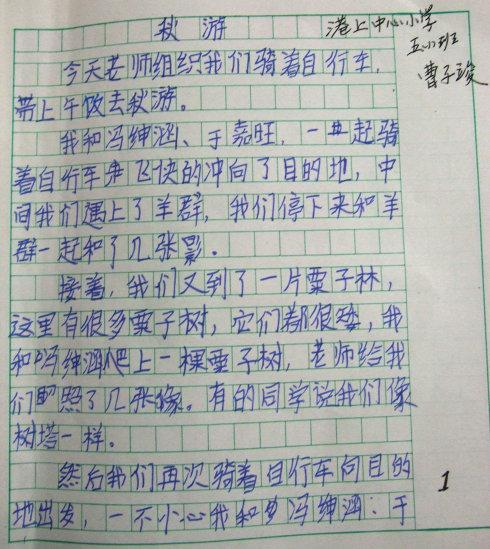 秋游
港上中心小学
五(1)班
曹子琰
今天老师组织我们骑着自行车,
带上午饭去秋游。
我和冯绅涵、于嘉旺,一起骑
着自行车飞快的冲向了目的地,中
间我们遇上了羊群,我们停下来和羊
群一起和了几张影。
接着,我们又到了一片栗子林,
这里有很多栗子树,它们都很矮,我
和冯绅涵爬上一棵栗子树,老师给我
们照了几张像。有的同学说我们像
树塔一样。
然后我们再次骑着自行车向目的
地出发,一不小心我和冯绅涵:于
1